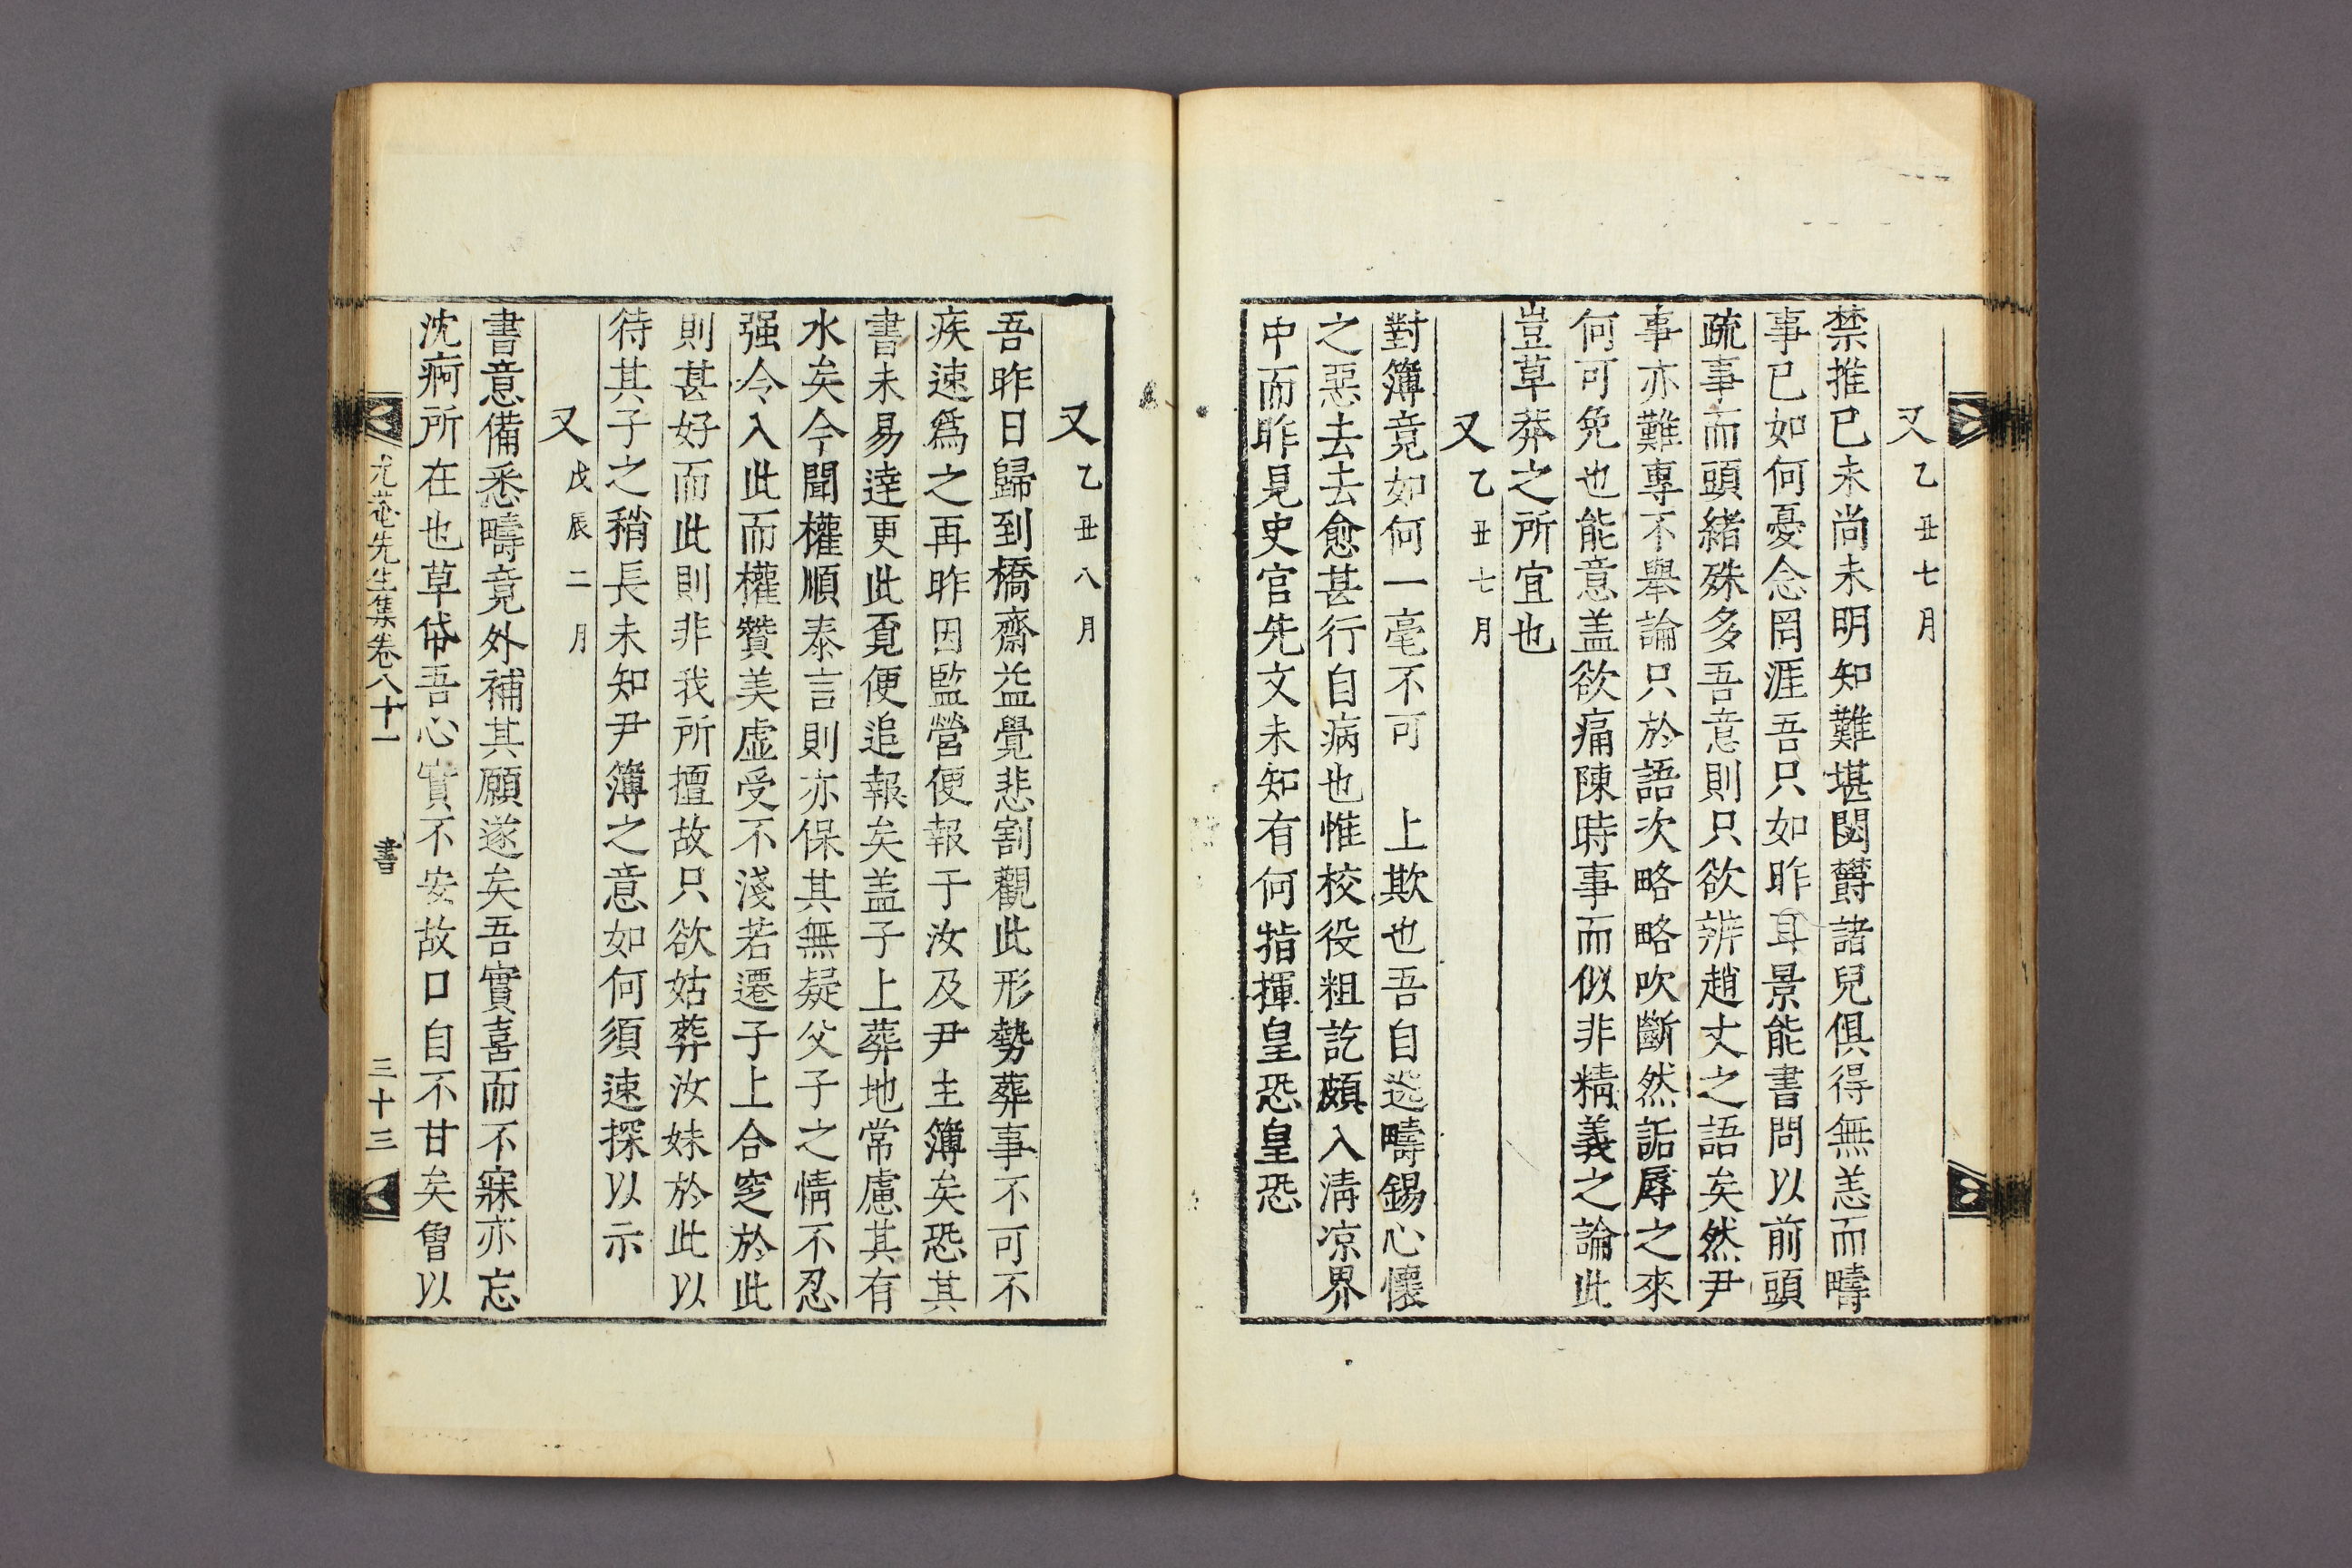 又乙丑七月
禁推已未尚未明知難堪閔欝諸兒俱得無恙而疇
事已如何憂念罔涯吾只如昨耳景能書問以前頭
疏事而頭緒殊多吾意則只欲辨趙丈之語矣然尹
事亦難專不舉論只於語次略略吹斷然詬辱之來
何可免也能意盖欲痛陳時事而似非精義之論此
豈草莽之所宜也
又乙丑七月
對簿竟如何一毫不可 上欺也吾自送疇錫心懷
之惡去去愈甚行自病也惟校役粗訖頗入淸凉界
中而昨見史官先文未知有何指揮皇恐皇恐
又乙丑八月
吾昨日歸到橋齋益覺悲割觀此形勢葬事不可不
疾速爲之再昨因監營便報于汝及尹主簿矣恐其
書未易達更此覔便追報矣盖子上葬地常慮其有
水矣今聞權順泰言則亦保其無疑父子之情不忍
强令入此而權贊美虛受不淺若遷子上合窆於此
則甚好而此則非我所擅故只欲姑葬汝妹於此以
待其子之稍長未知尹簿之意如何須速探以示
又戊辰二月
書意備悉疇竟外補其願遂矣吾實喜而不寐亦忘
沈痾所在也草帒吾心實不安故口自不甘矣曾以
尤菴先生集卷八十一 書 三十三